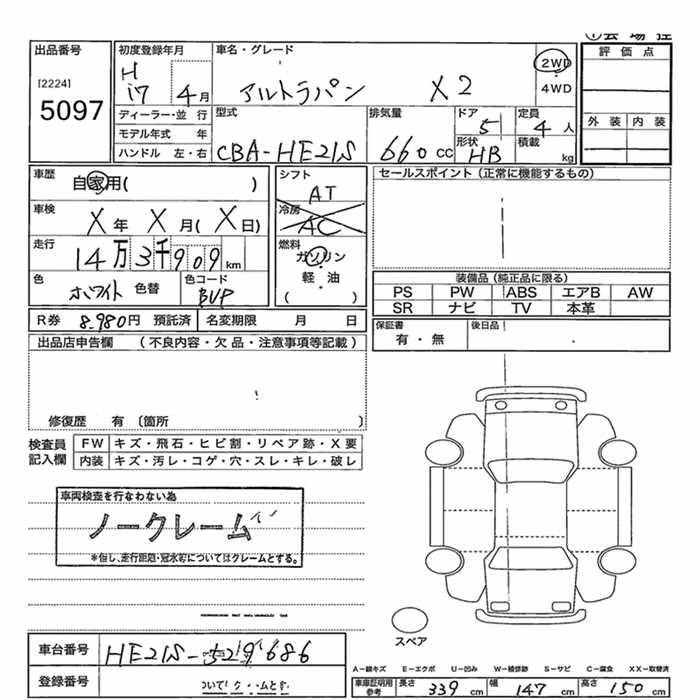 出品番号
[2224]
5097
初度登録年月
H
17 4月
車名・グレード
アルトラパン X2
2WD
4WD
評価点
外装 内装
ディーラー・並行
モデル年式 年
ハンドル 左・右
型式
CBA-HE21S
排気量
660cc
ドア
5
形状
HB
定員
4人
積載
kg
車歴
自家用( )
車検
X年X月(X日)
走行
14万3千909km
色
ホワイト 色替
色コード
BVP
シフト
AT
冷房
AC
燃料
ガソリン
軽・油
( )
セールスポイント (正常に機能するもの)
装備品 (純正品に限る)
PS PW ABS エアB AW
SR ナビ TV 本革
保証書
有・無
後日品
R券 8,980円 預託済 名変期限 月 日
出品店申告欄 (不良内容・欠品・注意事項等記載)
修復歴 有 〔箇所 〕
検査員
記入欄
FW キズ・飛石・ヒビ割・リペア跡・X要
内装 キズ・汚レ・コゲ・穴・スレ・キレ・破レ
車両検査を行なわない為
ノークレーム
*但し、走行距離・冠水等についてはクレームとする。
スペア
車台番号
HE21S-529686
登録番号
A-線キズ E-エクボ U-凹み W-補修跡 S-サビ C-腐食 XX-取替済
車庫証明用
参考
長さ 339cm 幅 147cm 高さ 150cm